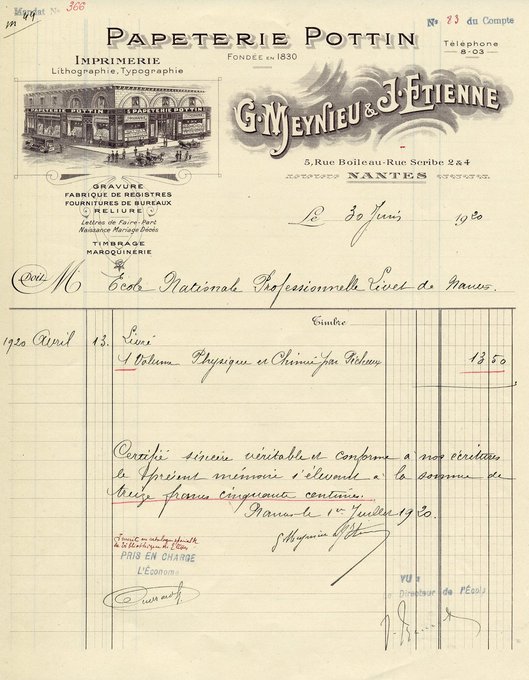 Mandat N° 366
N° 23 du Compte
PAPETERIE POTTIN
FONDÉE EN 1830
Téléphone
8-03
IMPRIMERIE
Lithographie, Typographie
PAPETERIE POTTIN
PAPETERIE POTTIN
G. MEYNIEU & J. ETIENNE
5, Rue Boileau-Rue Scribe 2 & 4
NANTES
GRAVURE
FABRIQUE DE REGISTRES
FOURNITURES DE BUREAUX
RELIURE
Lettres de Faire-Part
Naissance Mariage Décès
TIMBRAGE
MAROQUINERIE
Le 30 Juin 1920
Doit M École Nationale Professionnelle Livet de Nantes
Timbre
1920 Avril 13. Livré
1 Volume Physique et Chimie par 13 50
Certifié sincère véritable et conforme à nos écritures
le présent mémoire s'élevant à la somme de
treize francs cinquante centimes.
Nantes le 1er Juillet 1920.
PRIS EN CHARGE
L'Économe
VU :
Directeur de l'École